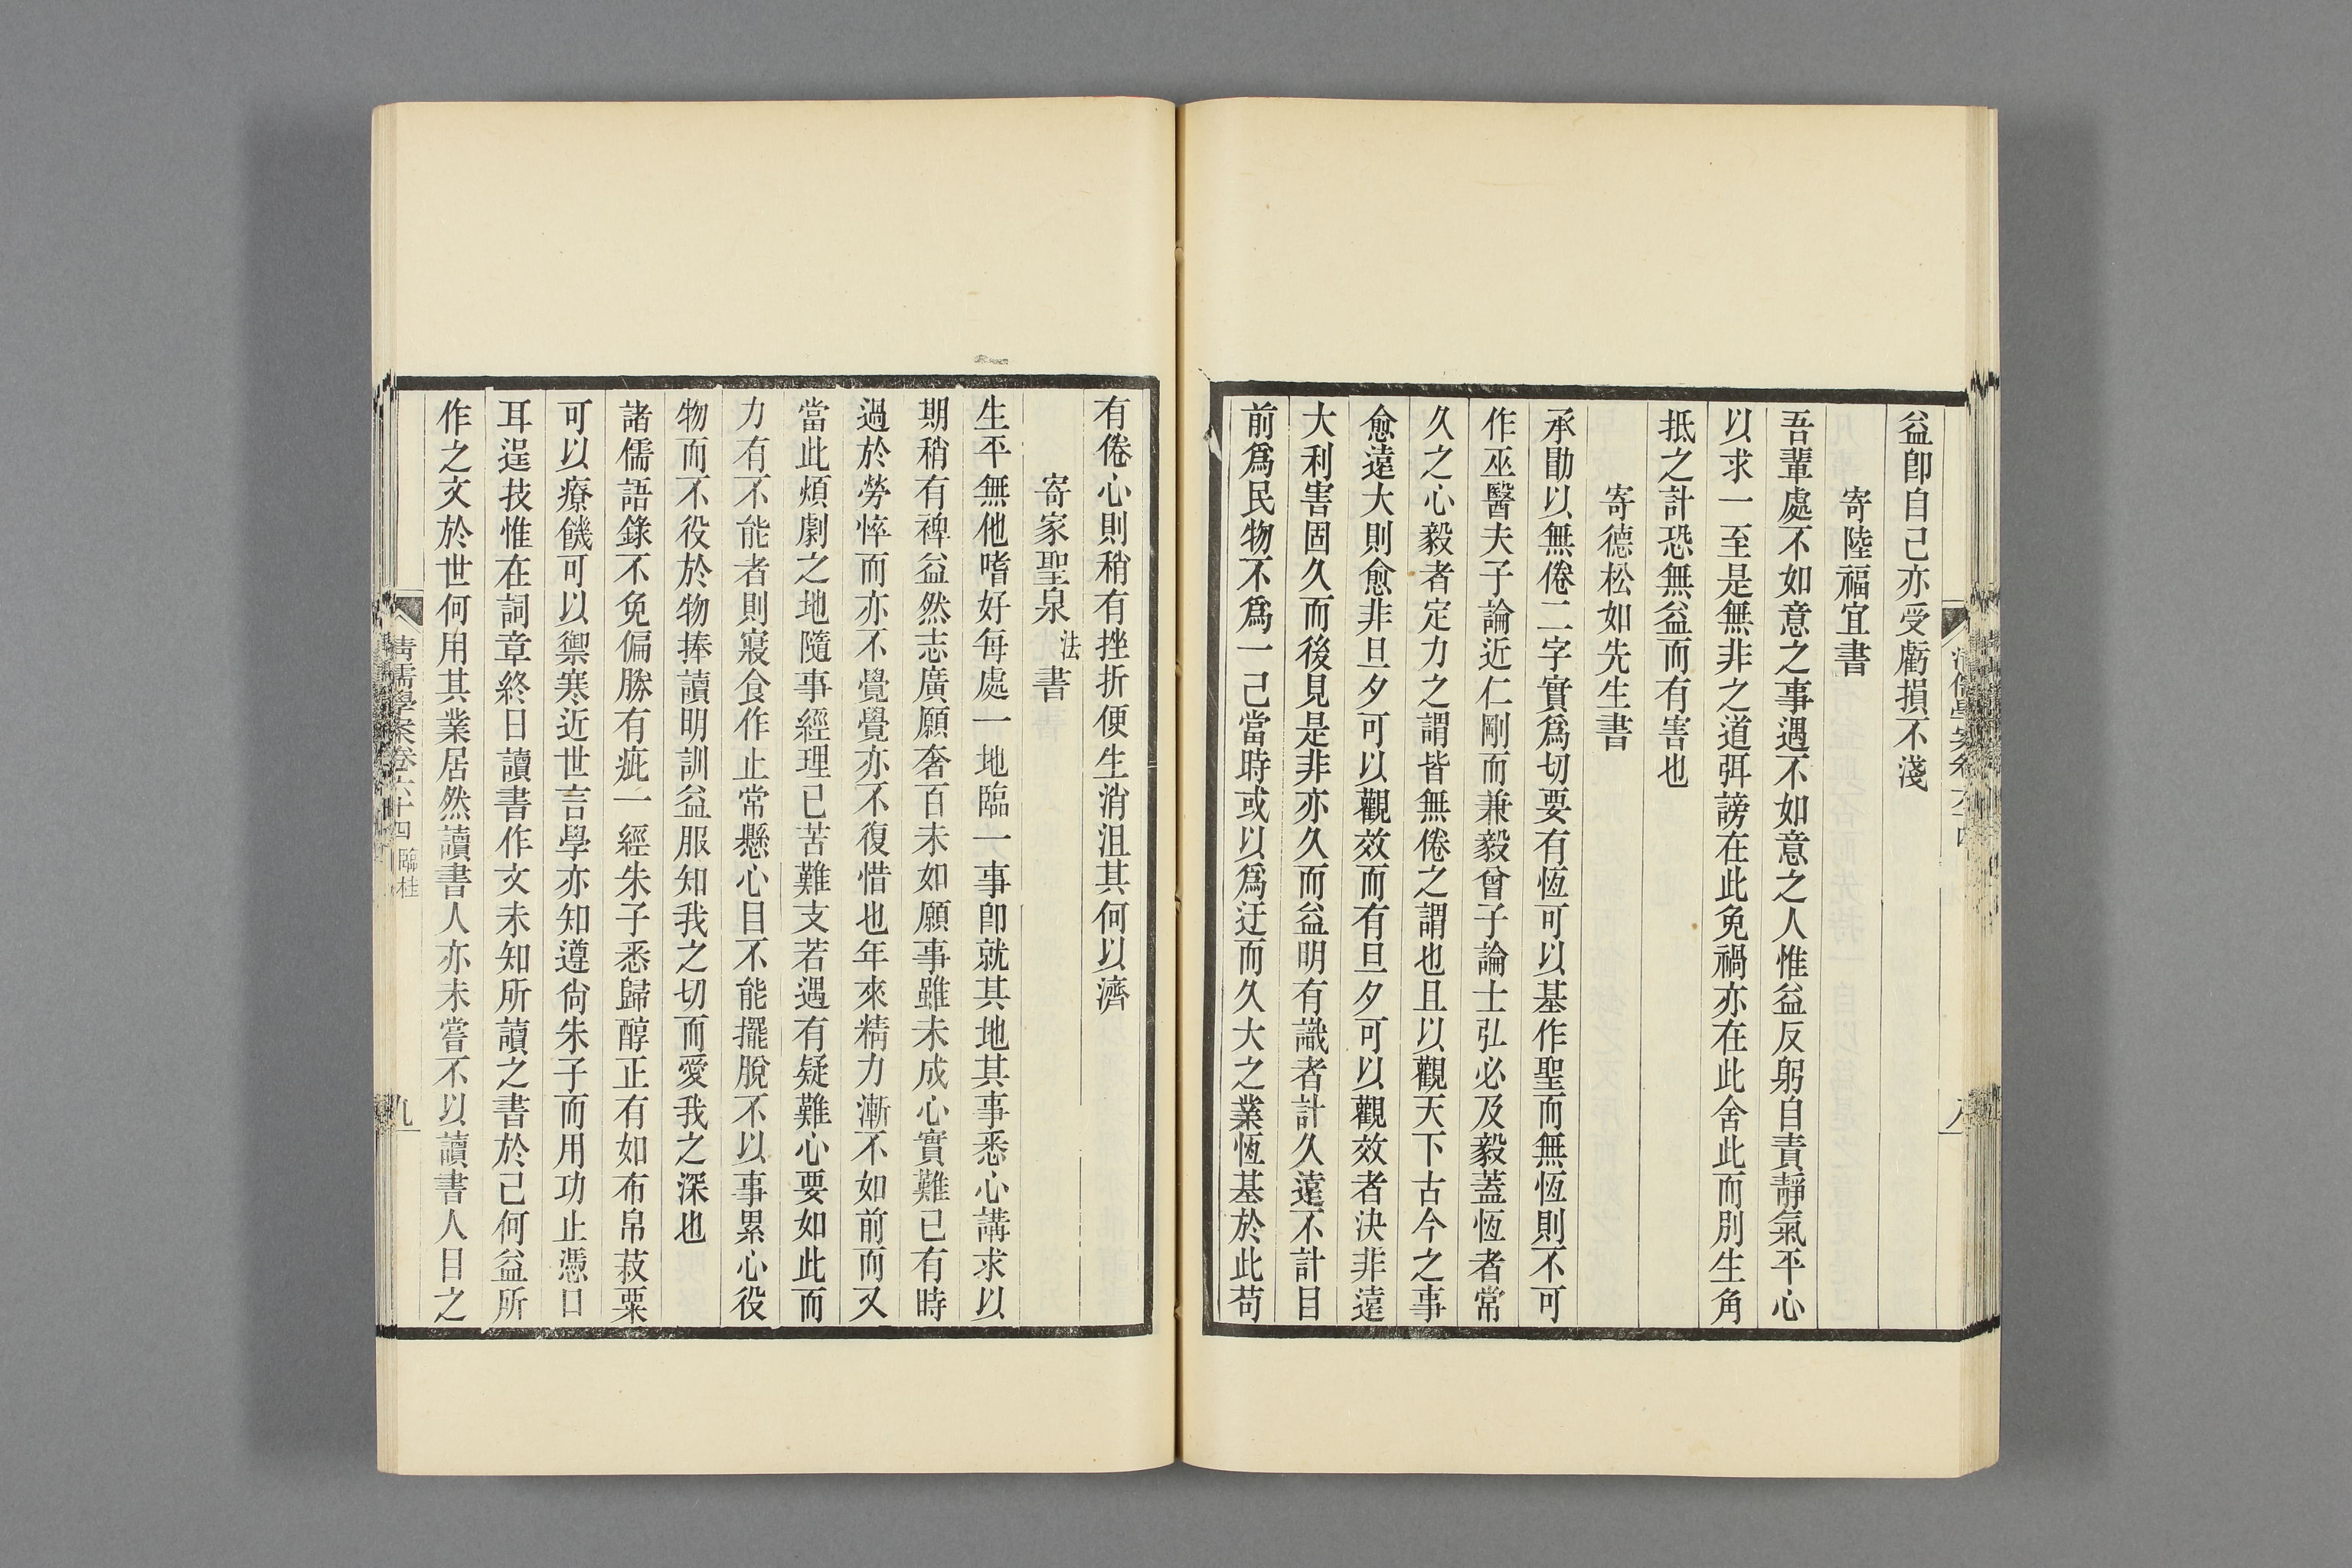 益卽自己亦受虧損不淺
寄陸福宜書
吾輩處不如意之事遇不如意之人惟益反躬自責靜氣平心
以求一至是無非之道弭謗在此免禍亦在此舍此而別生角
抵之計恐無益而有害也
寄德松如先生書
承勖以無倦二字實爲切要有恆可以基作聖而無恆則不可
作巫醫夫子論近仁剛而兼毅曾子論士弘必及毅蓋恆者常
久之心毅者定力之謂皆無倦之謂也且以觀天下古今之事
愈遠大則愈非旦夕可以觀效而有旦夕可以觀效者決非遠
大利害固久而後見是非亦久而益明有識者計久遠不計目
前爲民物不爲一己當時或以爲迂而久大之業恆基於此苟
有倦心則稍有挫折便生消沮其何以濟
寄家聖泉法書
生平無他嗜好每處一地臨一事卽就其地其事悉心講求以
期稍有裨益然志廣願奢百未如願事雖未成心實難已有時
過於勞悴而亦不覺覺亦不復惜也年來精力漸不如前而又
當此煩劇之地隨事經理已苦難支若遇有疑難心要如此而
力有不能者則寢食作止常懸心目不能擺脫不以事累心役
物而不役於物捧讀明訓益服知我之切而愛我之深也
諸儒語錄不免偏勝有疵一經朱子悉歸醇正有如布帛菽粟
可以療饑可以禦寒近世言學亦知遵尙朱子而用功止憑口
耳逞技惟在詞章終日讀書作文未知所讀之書於己何益所
作之文於世何用其業居然讀書人亦未嘗不以讀書人目之
清儒學案卷六十四 臨桂
九